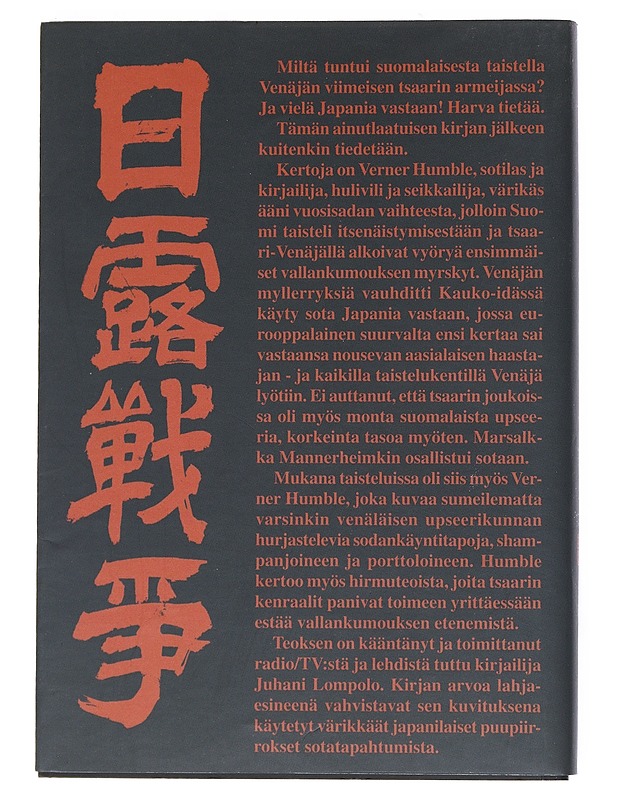 日露戰爭
Miltä tuntui suomalaisesta taistella
Venäjän viimeisen tsaarin armeijassa?
Ja vielä Japania vastaan! Harva tietää.
Tämän ainutlaatuisen kirjan jälkeen
kuitenkin tiedetään.
Kertoja on Verner Humble, sotilas ja
kirjailija, hulivili ja seikkailija, värikäs
ääni vuosisadan vaihteesta, jolloin Suo-
mi taisteli itsenäistymisestään ja tsaa-
ri-Venäjällä alkoivat vyöryä ensimmäi-
set vallankumouksen myrskyt. Venäjän
myllerryksiä vauhditti Kauko-idässä
käyty sota Japania vastaan, jossa eu-
rooppalainen suurvalta ensi kertaa sai
vastaansa nousevan aasialaisen haasta-
jan - ja kaikilla taistelukentillä Venäjä
lyötiin. Ei auttanut, että tsaarin joukois-
sa oli myös monta suomalaista upsee-
ria, korkeinta tasoa myöten. Marsalk-
ka Mannerheimkin osallistui sotaan.
Mukana taisteluissa oli siis myös Ver-
ner Humble, joka kuvaa sumeilematta
varsinkin venäläisen upseerikunnan
hurjastelevia sodankäyntitapoja, sham-
panjoineen ja porttoloineen. Humble
kertoo myös hirmuteoista, joita tsaarin
kenraalit panivat toimeen yrittäessään
estää vallankumouksen etenemistä.
Teoksen on kääntänyt ja toimittanut
radio/TV:stä ja lehdistä tuttu kirjailija
Juhani Lompolo. Kirjan arvoa lahja-
esineenä vahvistavat sen kuvituksena
käytetyt värikkäät japanilaiset puupiir-
rokset sotatapahtumista.